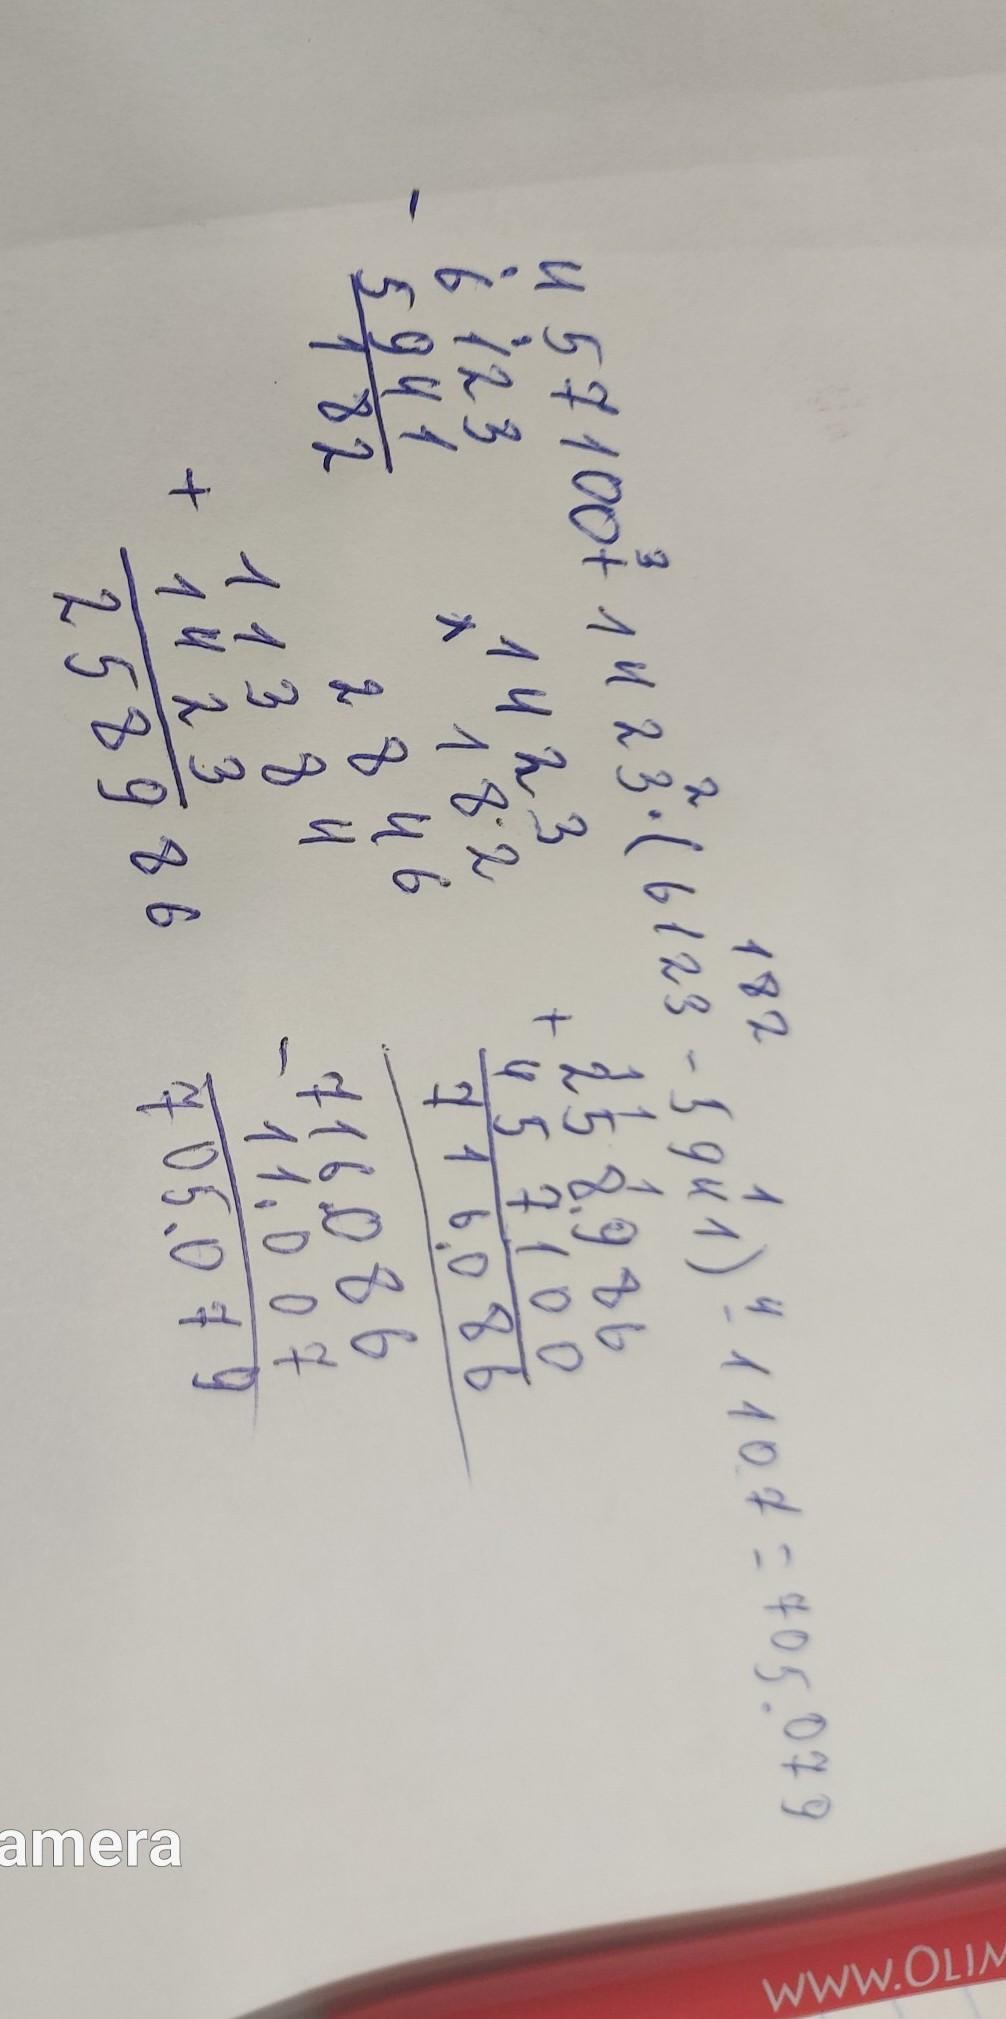 457100+³1423·²(6123-5941)-⁴1107=705.079
182
1
- 6123
5941
182
1423
x 182
2846
11384
+ 1423
258986
1 1 1
258.986
+ 457100
716.086
716086
- 11.007
705.079
amera
WWW.OLIM